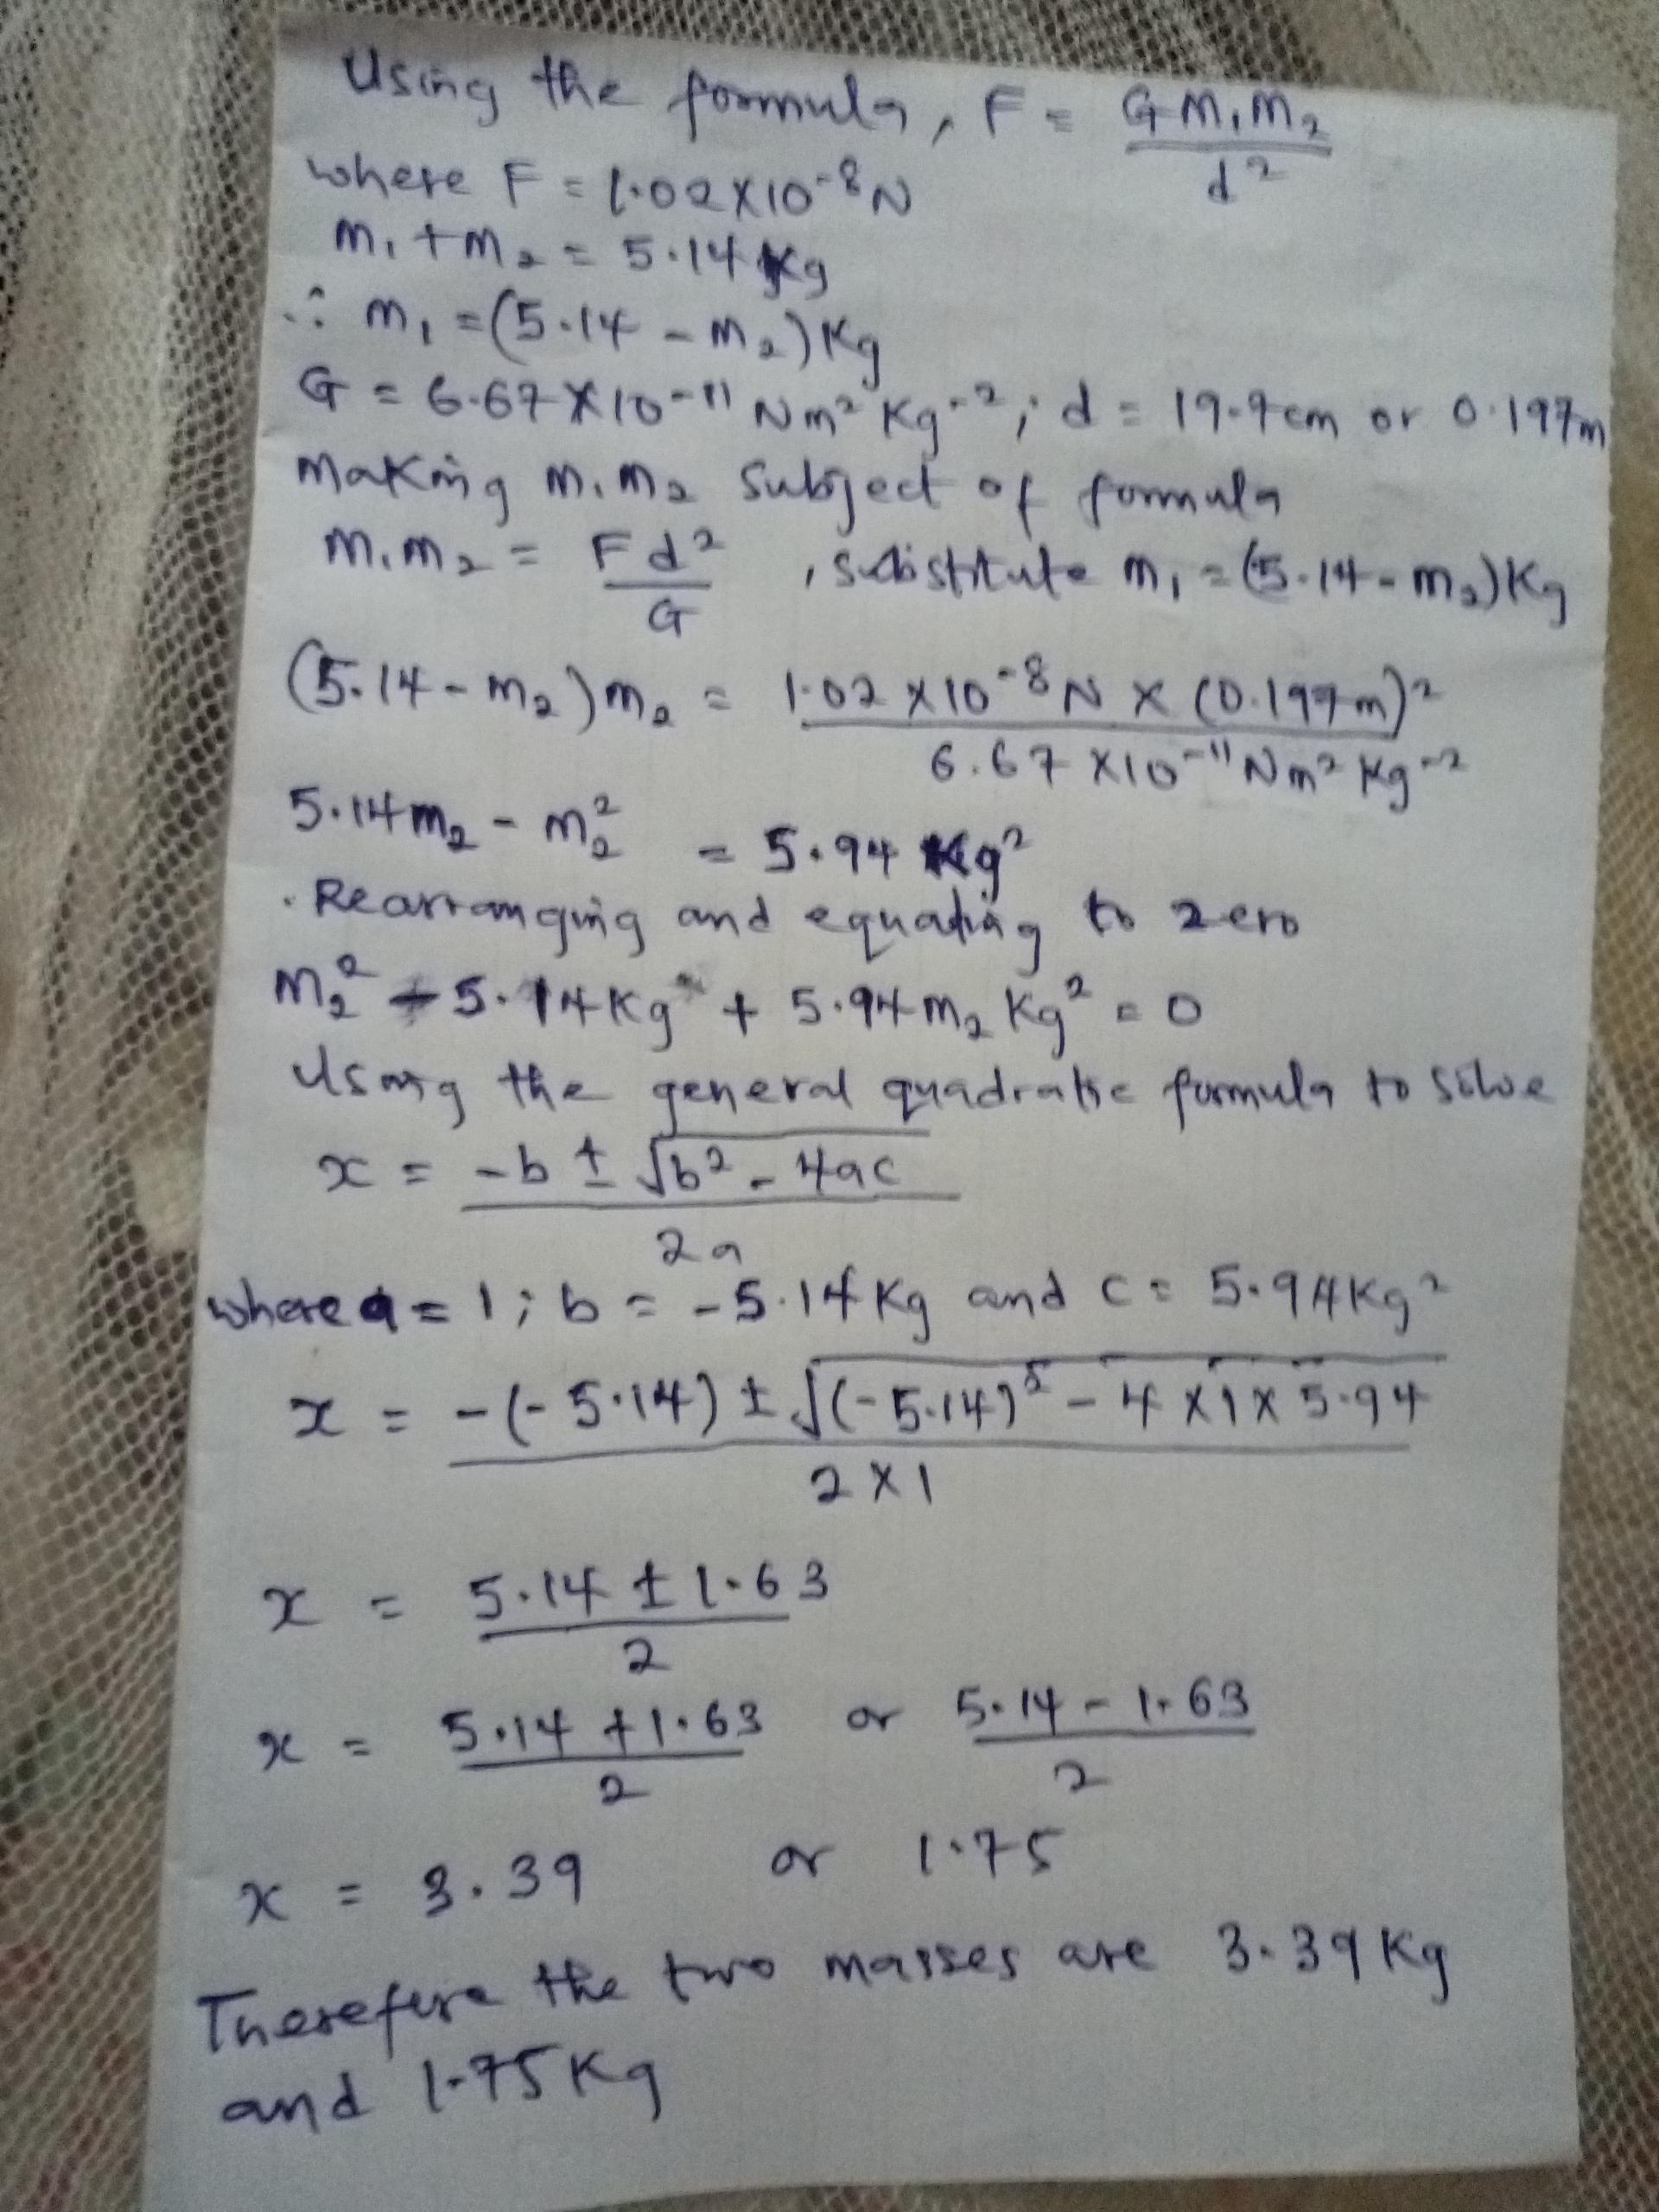 Using the formula, F = GM₁M₂/d²
where F = 1.02X10⁻⁸N
m₁ + m₂ = 5.14 Kg
∴ m₁ = (5.14 - m₂) Kg
G = 6.67 X 10⁻¹¹ Nm² Kg⁻²; d = 19.7cm or 0.197m
making m₁m₂ subject of formula
m₁m₂ = Fd²/G, substitute m₁ = (5.14 - m₂) Kg
(5.14 - m₂)m₂ = 1.02 X 10⁻⁸ N X (0.197m)² / 6.67 X10⁻¹¹ Nm² Kg⁻²
5.14m₂ - m₂² = 5.94 Kg²
Rearranging and equating to zero
m₂² - 5.14Kg + 5.94m₂ Kg² = 0
Using the general quadratic formula to solve
x = -b ± √b² - 4ac / 2a
where a = 1; b = -5.14 Kg and c = 5.94Kg²
x = -(-5.14) ± √(-5.14)² - 4 X 1 X 5.94 / 2 X 1
x = 5.14 ± 1.63 / 2
x = 5.14 + 1.63 / 2 or 5.14 - 1.63 / 2
x = 3.39 or 1.75
Therefore the two masses are 3.39 Kg
and 1.75 Kg